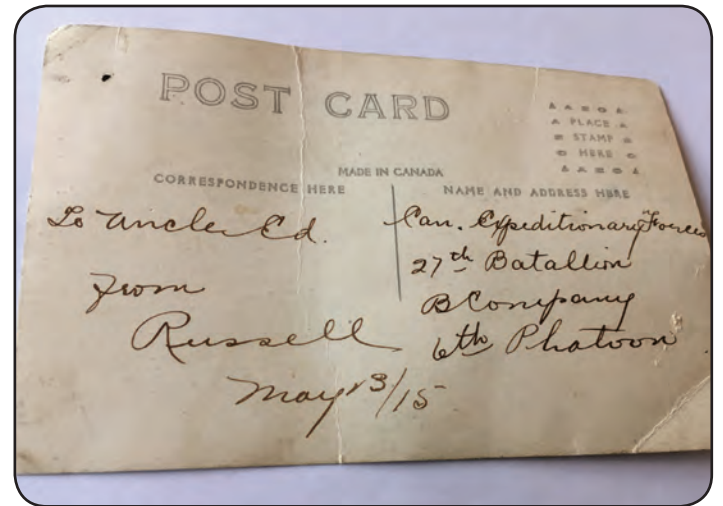 POST CARD
PLACE
STAMP
HERE
MADE IN CANADA
CORRESPONDENCE HERE
NAME AND ADDRESS HERE
To Uncle Ed.
From
Russell
May 13/15
Can. Expeditionary Forces
27th Batallion
B Company
6th Phatoon